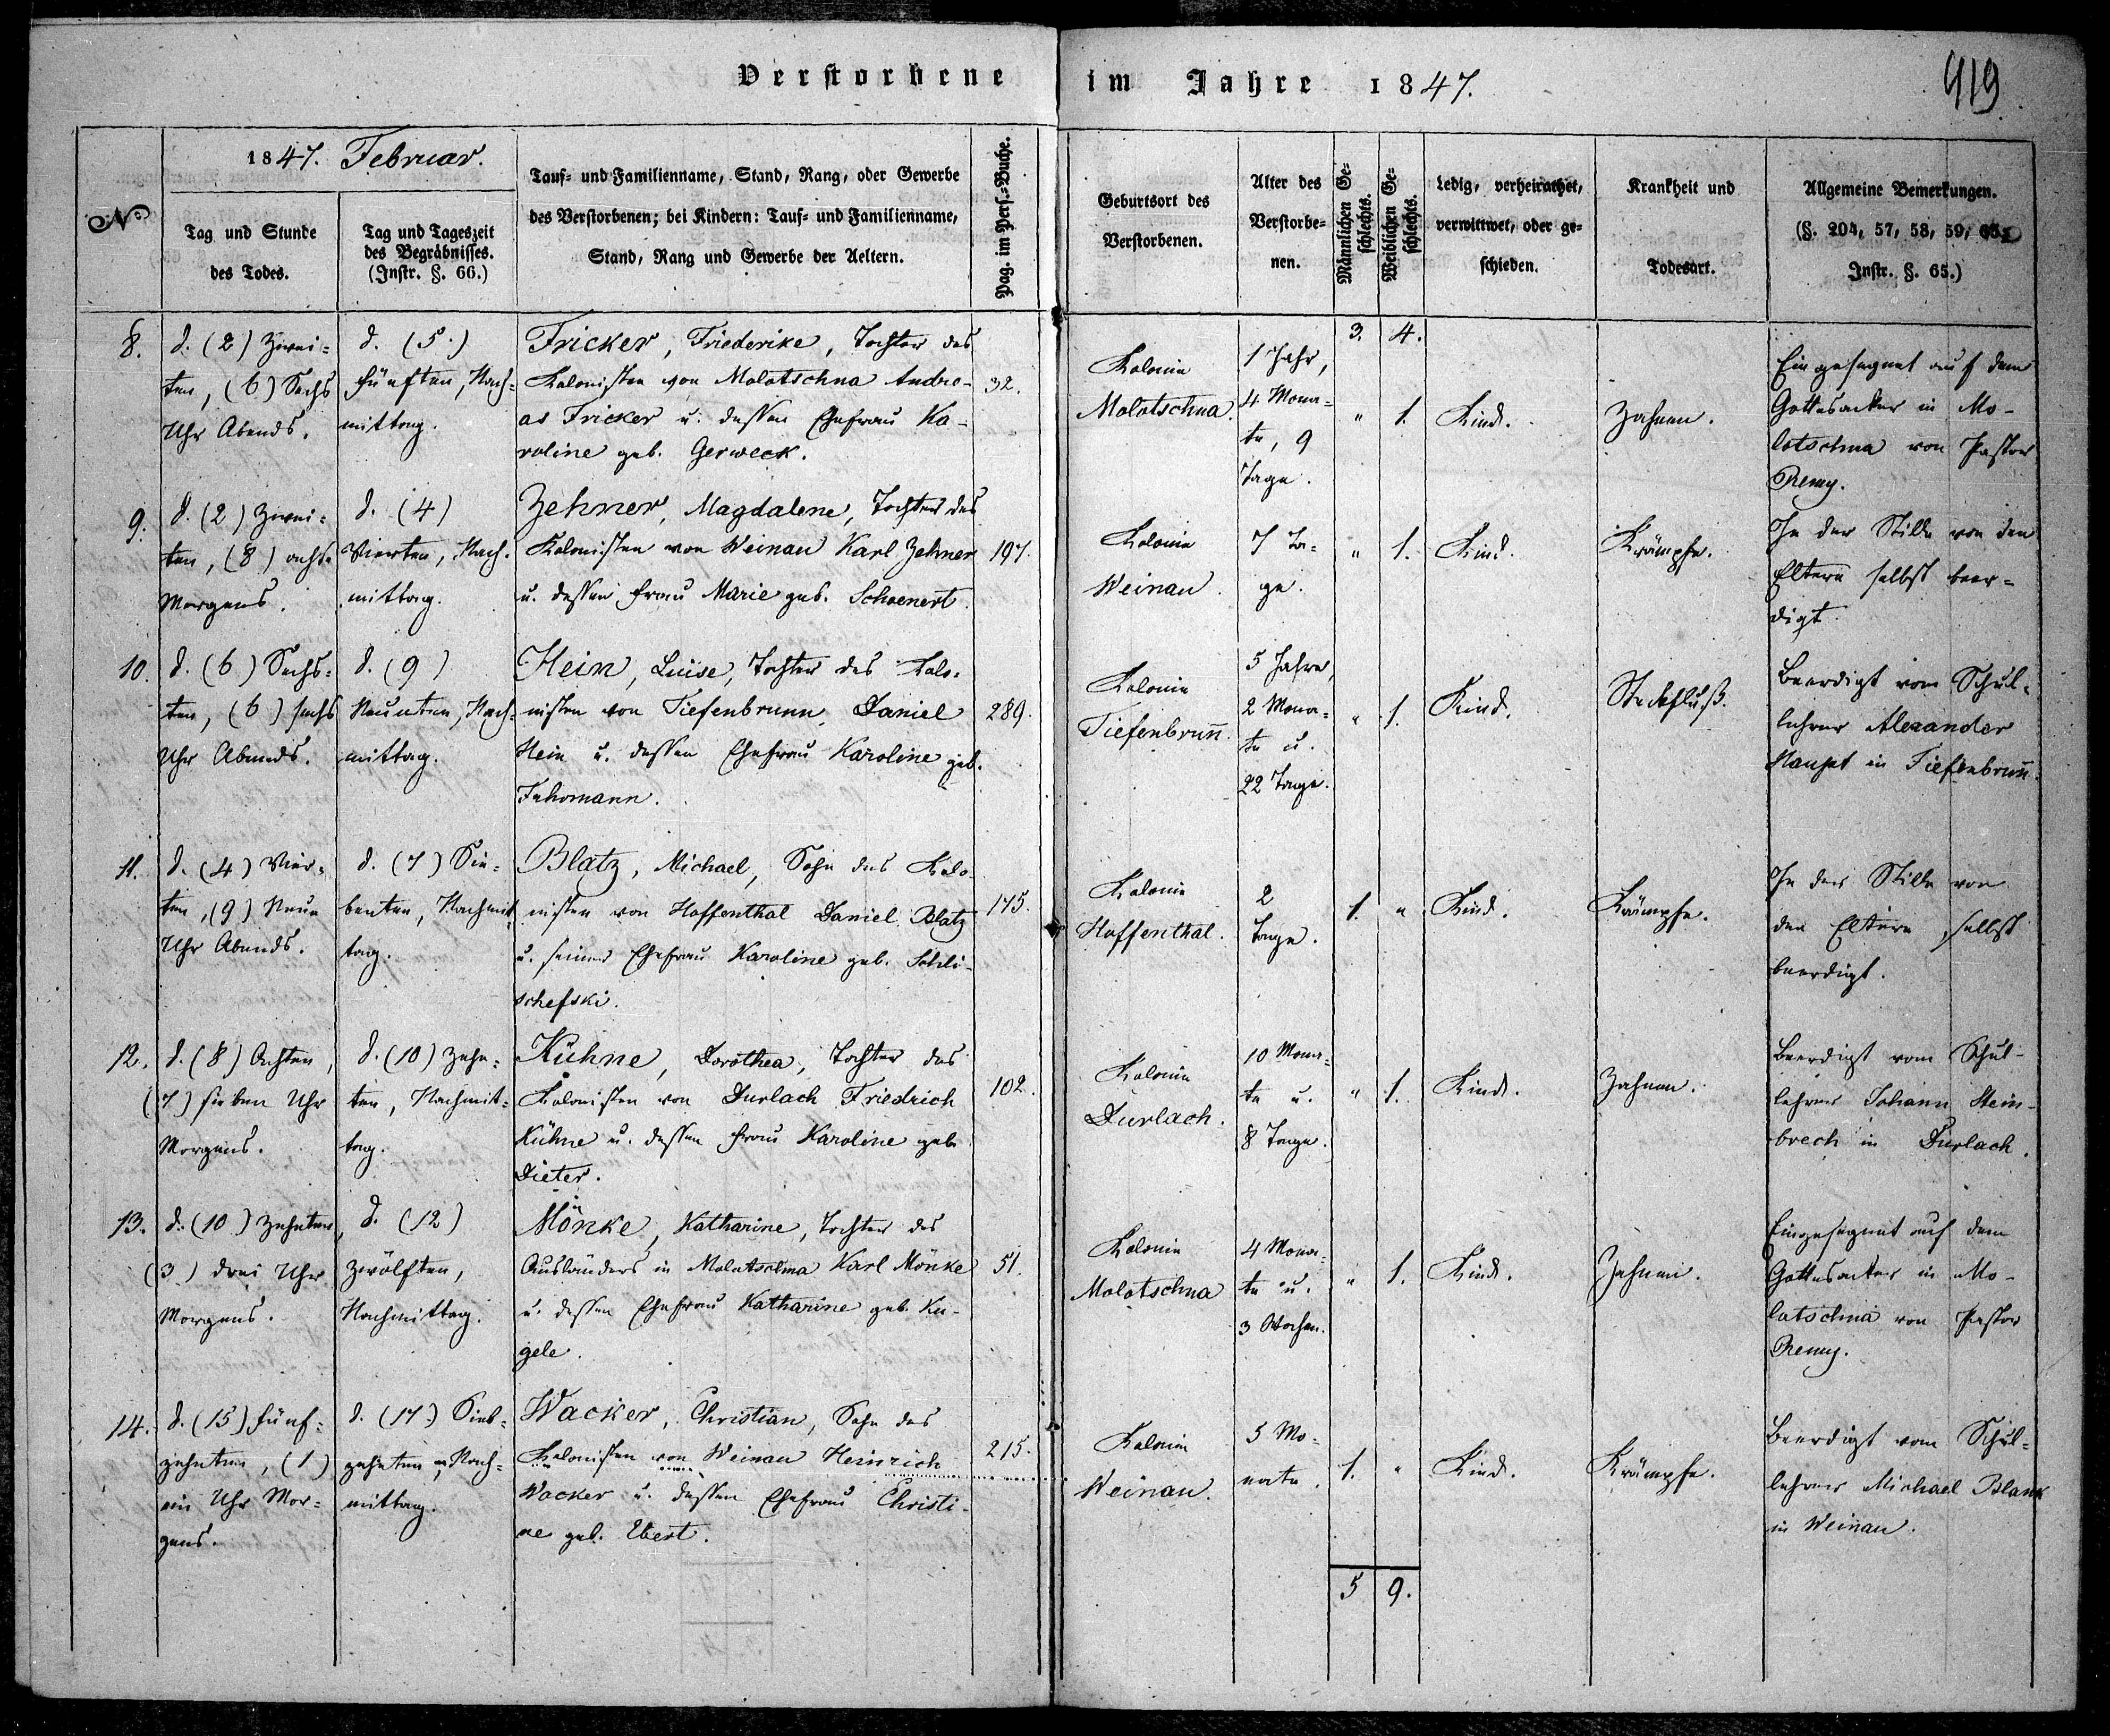 Verstorbene im Jahre 1847.
419
No
1847. Februar.
Tag und Stunde
des Todes.
Tag und Tageszeit
des Begräbnisses.
(Instr. §. 66.)
Tauf- und Familienname, Stand, Rang, oder Gewerbe
des Verstorbenen; bei Kindern: Tauf- und Familienname,
Stand, Rang und Gewerbe der Aeltern.
Pag. im Pers.-Buche.
Geburtsort des
Verstorbenen.
Alter des
Verstorbe-
nen.
Männlichen Ge-
schlechts.
Weiblichen Ge-
schlechts.
Ledig, verheirathet,
verwittwet, oder ge-
schieden.
Krankheit und
Todesart.
Allgemeine Bemerkungen.
(§. 204, 57, 58, 59,
Instr. §. 65.)
3. 4.
8.
d. (2) Zwei-
ten, (6) Sechs
Uhr Abends.
d. (5.)
fünften, Nach-
mittag.
Fricker, Friederike, Tochter des
Kolonisten von Molotschna Andre-
as Fricker u. dessen Ehefrau Ka-
roline geb. Gerweck.
32.
Kolonie
Molotschna.
1 Jahr,
4 Mona-
te, 9
Tage.
" 1.
Kind.
Zahnen.
Eingesegnet auf dem
Gottesacker in Mo-
lotschna von Pastor
Remy.
9.
d. (2) Zwei-
ten, (8) acht
Morgens.
d. (4)
Vierten, Nach-
mittag.
Zehner, Magdalene, Tochter des
Kolonisten von Weinau Karl Zehner
u. dessen Frau Marie geb. Schoenert.
197.
Kolonie
Weinau.
7 Ta-
ge.
" 1.
Kind.
Krämpfe.
In der Stille von den
Eltern selbst beer-
digt.
10.
d. (6) Sechs-
ten, (6) sechs
Uhr Abends.
d. (9)
Neunten, Nach-
mittag.
Hein, Luise, Tochter des Kolo-
nisten von Tiefenbrunn, Daniel
Hein u. dessen Ehefrau Karoline geb.
289.
Kolonie
Tiefenbrunn.
5 Jahre,
2 Mona-
te u.
22 Tage.
" 1.
Kind.
Steckfluß.
Beerdigt vom Schul-
lehrer Alexander
Haupt in Tiefenbrunn.
11.
d. (4) Vier-
ten, (9) Neun
Uhr Abends.
d. (7) Sie-
benten, Nachmit-
tag.
Blatz, Michael, Sohn des Kolo-
nisten von Hoffenthal Daniel Blatz
u. seiner Ehefrau Karoline geb. Schli-
schefski.
175.
Kolonie
Hoffenthal.
2
Tage.
1. "
Kind.
Krämpfe.
In der Stille von
den Eltern selbst
beerdigt.
12.
d. (8) Achten,
(7) sieben Uhr
Morgens.
d. (10) Zehn-
ten, Nachmit-
tag.
Kühne, Dorothea, Tochter des
Kolonisten von Durlach Friedrich
Kühne u. dessen Frau Karoline geb.
Dieter.
102.
Kolonie
Durlach.
10 Mona-
te u.
8 Tage.
" 1.
Kind.
Zahnen.
Beerdigt vom Schul-
lehrer Johann Stein-
brech in Durlach.
13.
d. (10) Zehnten,
(3) drei Uhr
Morgens.
d. (12)
Zwölften,
Nachmittag.
Mönke, Katharine, Tochter des
Ausländers in Molotschna Karl Mönke
u. dessen Ehefrau Katharine geb. Ku-
gele.
51.
Kolonie
Molotschna
4 Mona-
te u.
3 Wochen.
" 1.
Kind.
Zahnen.
Eingesegnet auf dem
Gottesacker in Mo-
lotschna von Pastor
Remy.
14.
d. (15) fünf-
zehnten, (1)
ein Uhr Mor-
gens.
d. (17.) Sieb-
zehnten, Nach-
mittag.
Wacker, Christian, Sohn des
Kolonisten von Weinau Heinrich
Wacker u. dessen Ehefrau Christi-
ne geb. Ebert.
215.
Kolonie
Weinau.
5 Mo-
nate.
1. "
Kind.
Krämpfe.
Beerdigt vom Schul-
lehrer Michael Blank
in Weinau.
5 9.